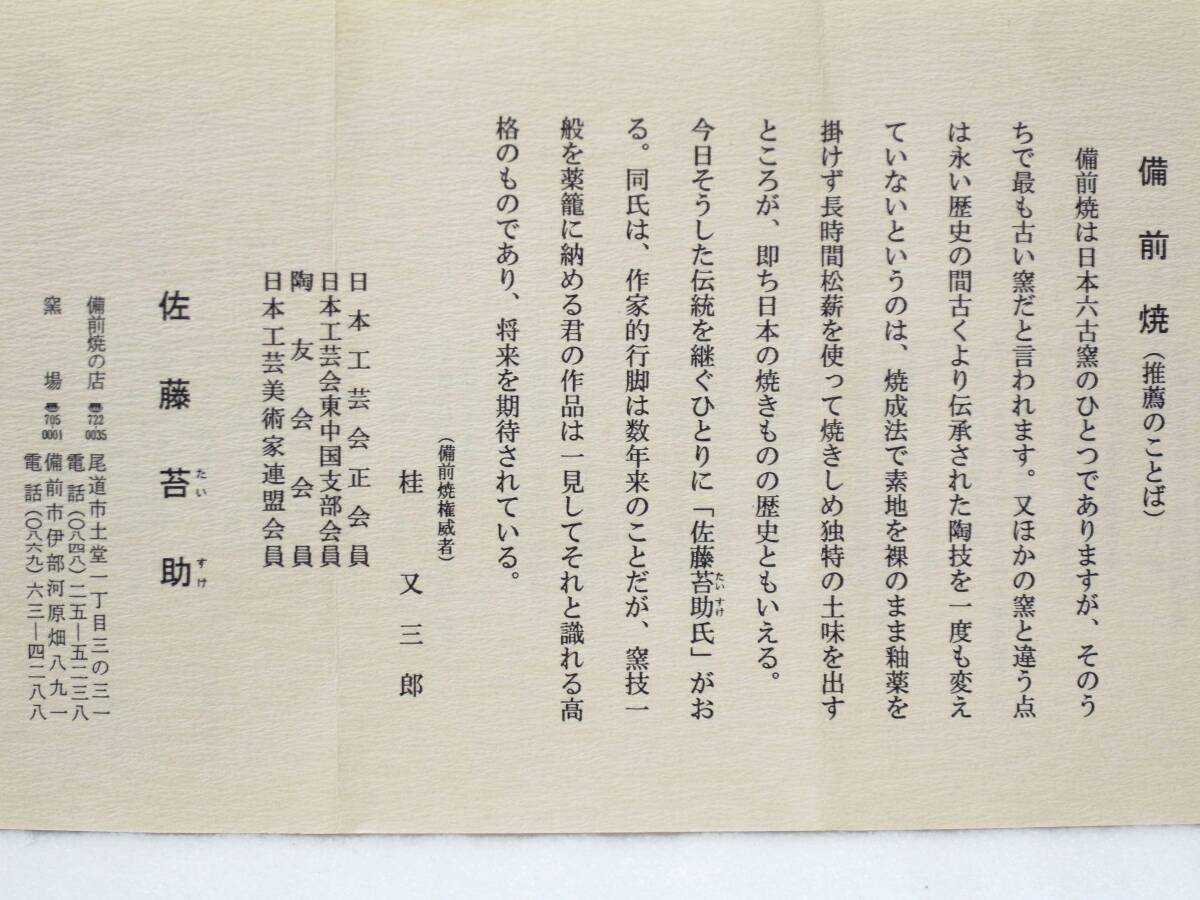 備前焼（推薦のことば）
備前焼は日本六古窯のひとつでありますが、そのう
ちで最も古い窯だと言われます。又ほかの窯と違う点
は永い歴史の間古くより伝承された陶技を一度も変え
ていないというのは、焼成法で素地を裸のまま釉薬を
掛けず長時間松薪を使って焼きしめ独特の土味を出す
ところが、即ち日本の焼きものの歴史ともいえる。
今日そうした伝統を継ぐひとりに「佐藤苔助氏」がお
たいすけ
る。同氏は、作家的行脚は数年来のことだが、窯技一
般を薬籠に納める君の作品は一見してそれと識れる高
格のものであり、将来を期待されている。
（備前焼権威者）
桂又三郎
日本工芸会正会員
日本工芸会東中国支部会員
陶友会会員
日本工芸美術家連盟会員
佐藤苔助
たいすけ
備前焼の店 〒722-0035 尾道市土堂一丁目三の三一
電話（〇八四八）二五―五二三八
窯場 〒705-0001 備前市伊部河原畑八九一
電話（〇八六九）六三―四二八八